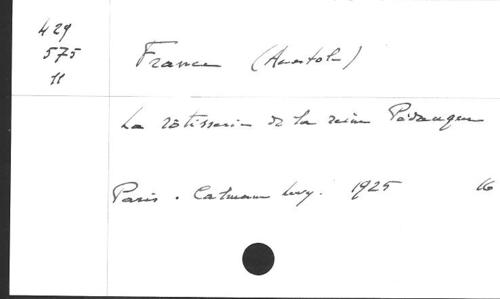 429
575
11
France (Anatole)
La rôtisserie de la reine Pédauque
Paris. Calmann Levy. 1925 16